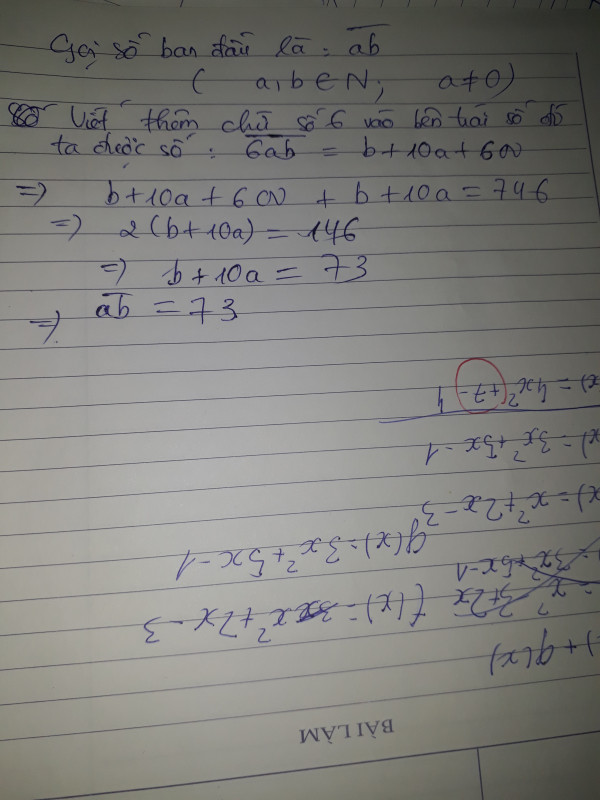 Gọi số ban đầu là: ab
( a,b ∈ N; a ≠ 0)
Viết thêm chữ số 6 vào bên trái số đó
ta được số: 6ab = b+10a+600
=> b+10a+600 + b+10a = 746
=> 2(b+10a) = 146
=> b+10a = 73
=> ab = 73
BÀI LÀM
) + g(x)
f(x) = x² + 2x - 3
g(x) = 3x² + 5x - 1
x) = x² + 2x - 3
x) = 3x² + 5x - 1
x) = 4x² + 7 - 4